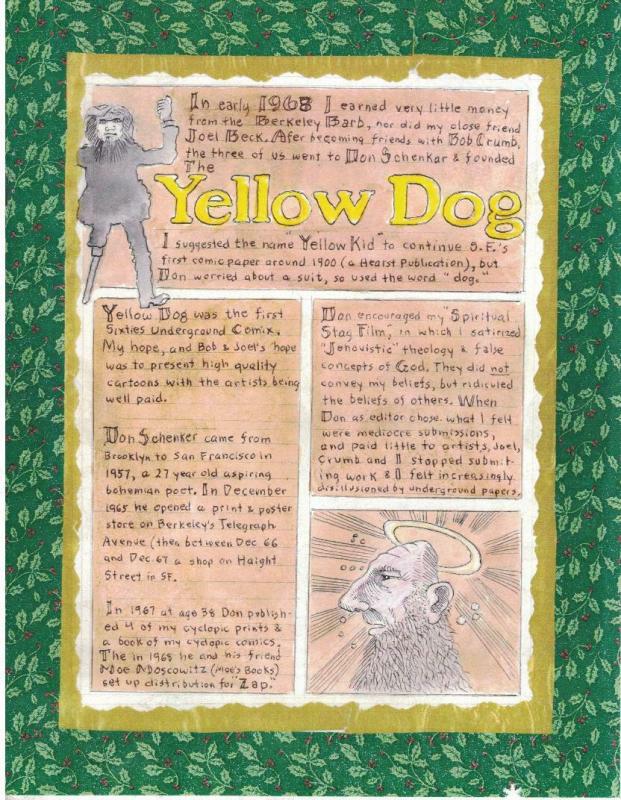 In early 1968 I earned very little money
from the Berkeley Barb, nor did my close friend
Joel Beck. Afer becoming friends with Bob Crumb,
the three of us went to Don Schenkar & founded
The
Yellow Dog
I suggested the name "Yellow Kid" to continue S.F.'s
first comic paper around 1900 (a Hearst Publication), but
Don worried about a suit, so used the word "dog."
Yellow Dog was the first
Sixties Underground Comix.
My hope, and Bob & Joel's hope
was to present high quality
cartoons with the artists being
well paid.
Don Schenker came from
Brooklyn to San Francisco in
1957, a 27 year old aspiring
bohemian poet. In December
1965 he opened a print & poster
store on Berkeley's Telegraph
Avenue (then between Dec 66
and Dec. 67 a shop on Haight
Street in SF.
In 1967 at age 38 Don publish-
ed 4 of my cyclopic prints &
a book of my cyclopic comics.
The in 1968 he and his friend
Moe Moscowitz (Moe's Books)
set up distribution for "Zap."
Don encouraged my "Spiritual
Stag Film", in which I satirized
"Jehovistic" theology & false
concepts of God. They did not
convey my beliefs, but ridiculed
the beliefs of others. When
Don as editor chose what I felt
were mediocre submissions,
and paid little to artists, Joel,
Crumb and I stopped submit-
ing work & I felt increasingly
disillusioned by underground papers.